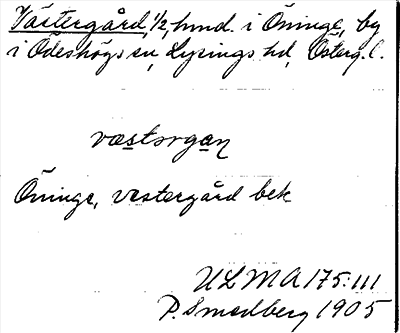 Västergård, 1/2, hmd. i Öninge, by
i Ödeshögs sn, Lysings hd, Österg. l.
væstorgaɳ
Öninge, vestergård bek
ULMA 175:111
P. Smedberg 1905